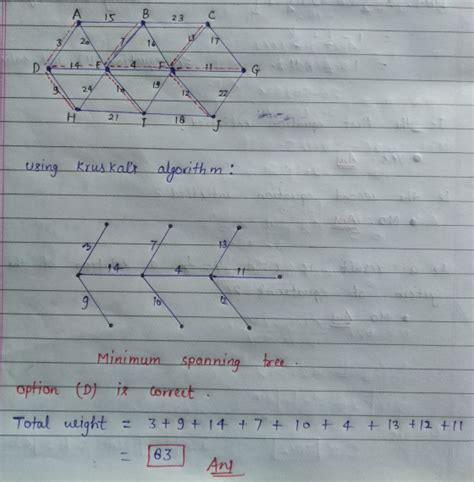 A 15 B 23 C
3 20 7 16 13 17
D 14 E 4 F 11 G
9 24 10 19 12 22
H 21 I 18 J
using Kruskal's algorithm:
3 7 13
14 4 11
9 10 12
Minimum spanning tree.
option (D) is correct.
Total weight = 3+9+14+7+10+4+13+12+11
= 83 Ans